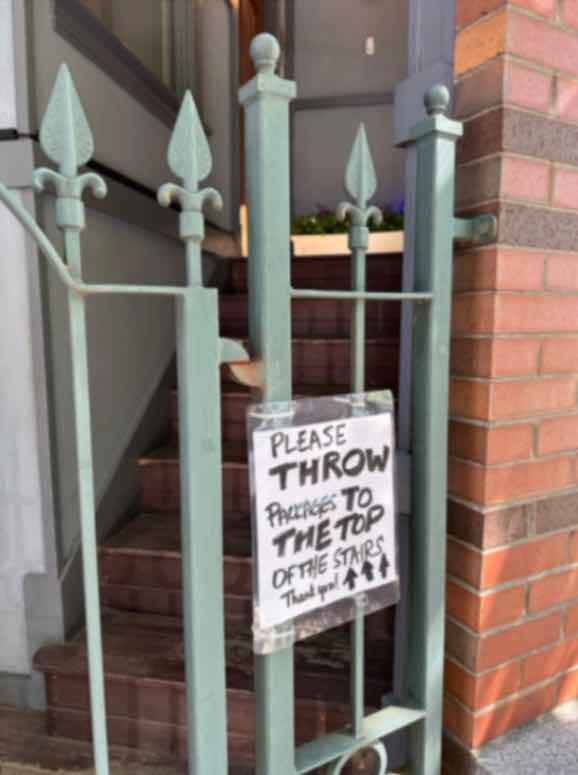 PLEASE
THROW
PACKAGES TO
THE TOP
OF THE STAIRS
Thank you! ↑↑↑